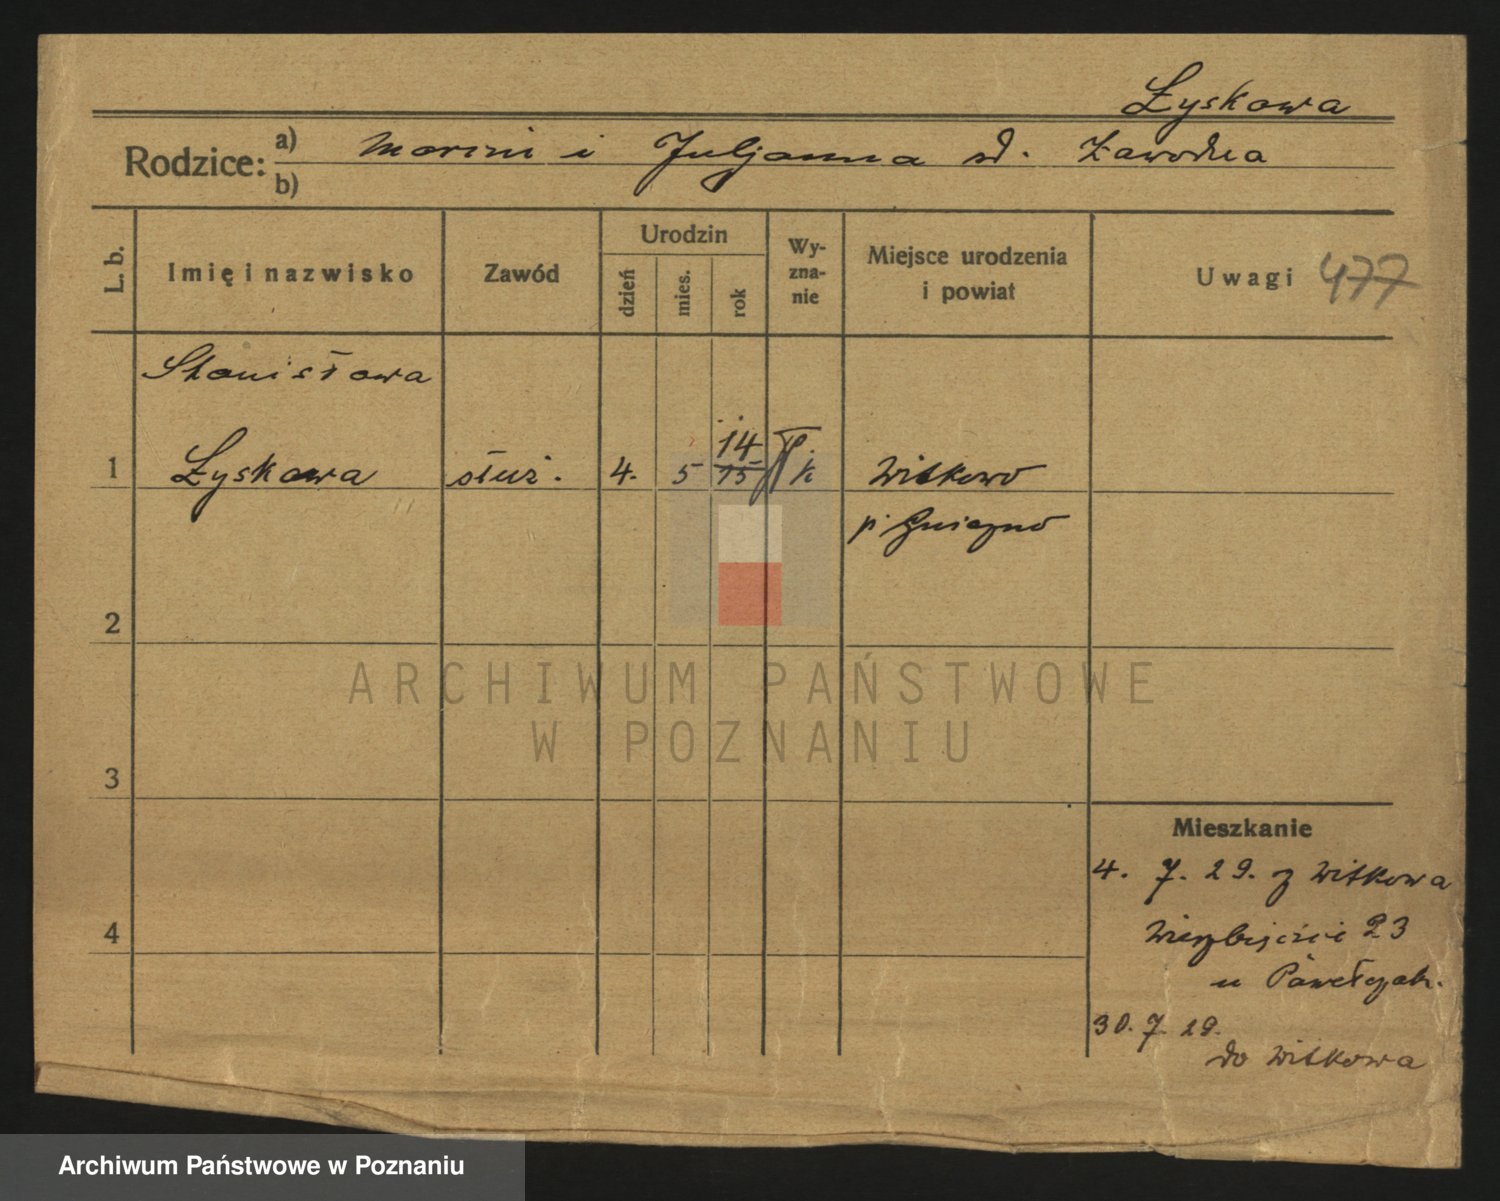 Łyskowa
Rodzice: a) Marcin i Juljanna d. Zawodna
b)
L. b. Imię i nazwisko Zawód Urodzin dzień mies. rok Wyznanie Miejsce urodzenia i powiat Uwagi 477
Stanisława
1 Łyskowa służ. 4. 5 14 15 rk Witkowo
p. Gniezno
2
3
4
Mieszkanie
4. 7. 29. z Witkowa
Wierzbięcice 23
u Pawełczak.
30. 7. 29.
do Witkowa
ARCHIWUM PAŃSTWOWE
W POZNANIU
Archiwum Państwowe w Poznaniu